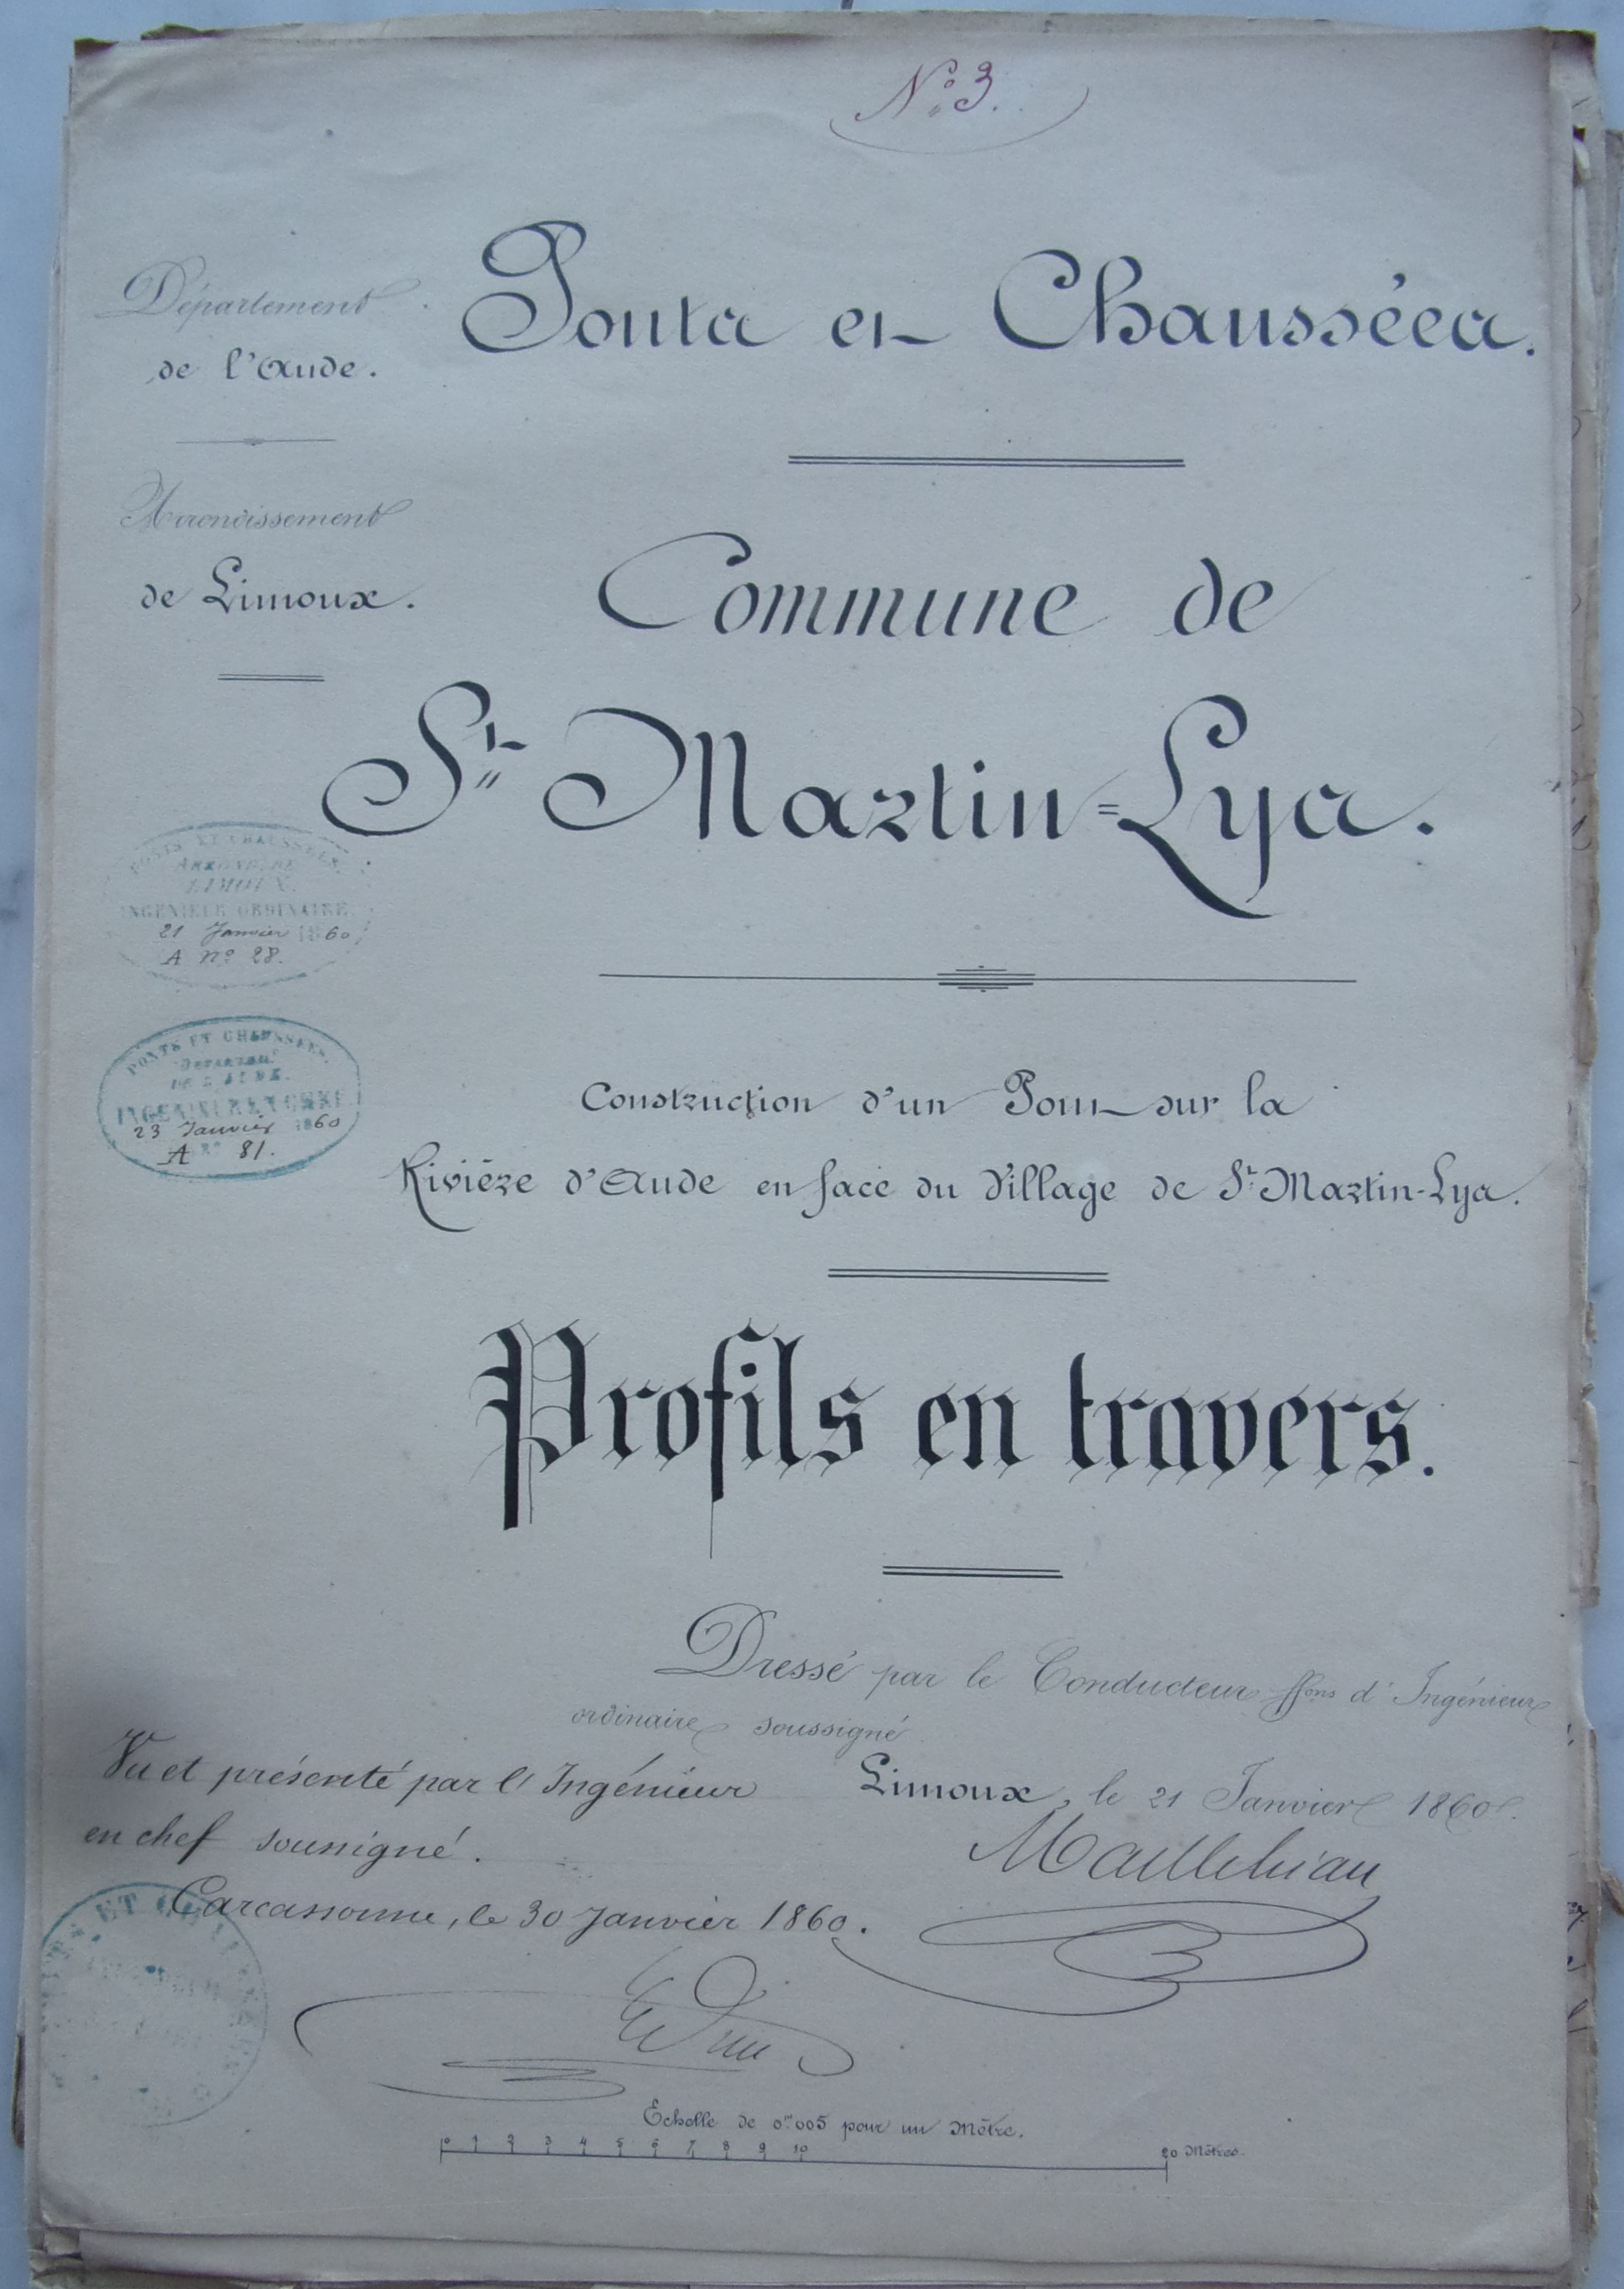 N° 3.
Département
de l'Aude.
Ponts et Chaussées.
Arrondissement
de Limoux.
Commune de
St Martin-Lys.
PONTS ET CHAUSSÉES
ARROND. DE
LIMOUX.
INGÉNIEUR ORDINAIRE
21 Janvier 1860
A N° 28.
PONTS ET CHAUSSÉES.
DÉPARTEMt
DE L'AUDE.
INGÉNIEUR EN CHEF
23 Janvier 1860
A N° 81.
Construction d'un Pont sur la
Rivière d'Aude en face du Village de St Martin-Lys.
Profils en travers.
Dressé par le Conducteur ffons d'Ingénieur
ordinaire soussigné
Limoux, le 21 Janvier 1860.
Vu et présenté par l'Ingénieur
en chef soussigné.
Carcassonne, le 30 Janvier 1860.
Echelle de 0m005 pour un Mètre.
0 1 2 3 4 5 6 7 8 9 10 20 Mètres.